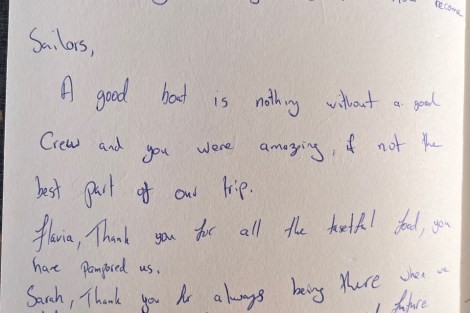 become
Sailors,
A good boat is nothing without a good
Crew and you were amazing, if not the
best part of our trip.
flavia, Thank you for all the tastefful food, you
have Pampored us.
Sarah, Thank you for always being there when we
future